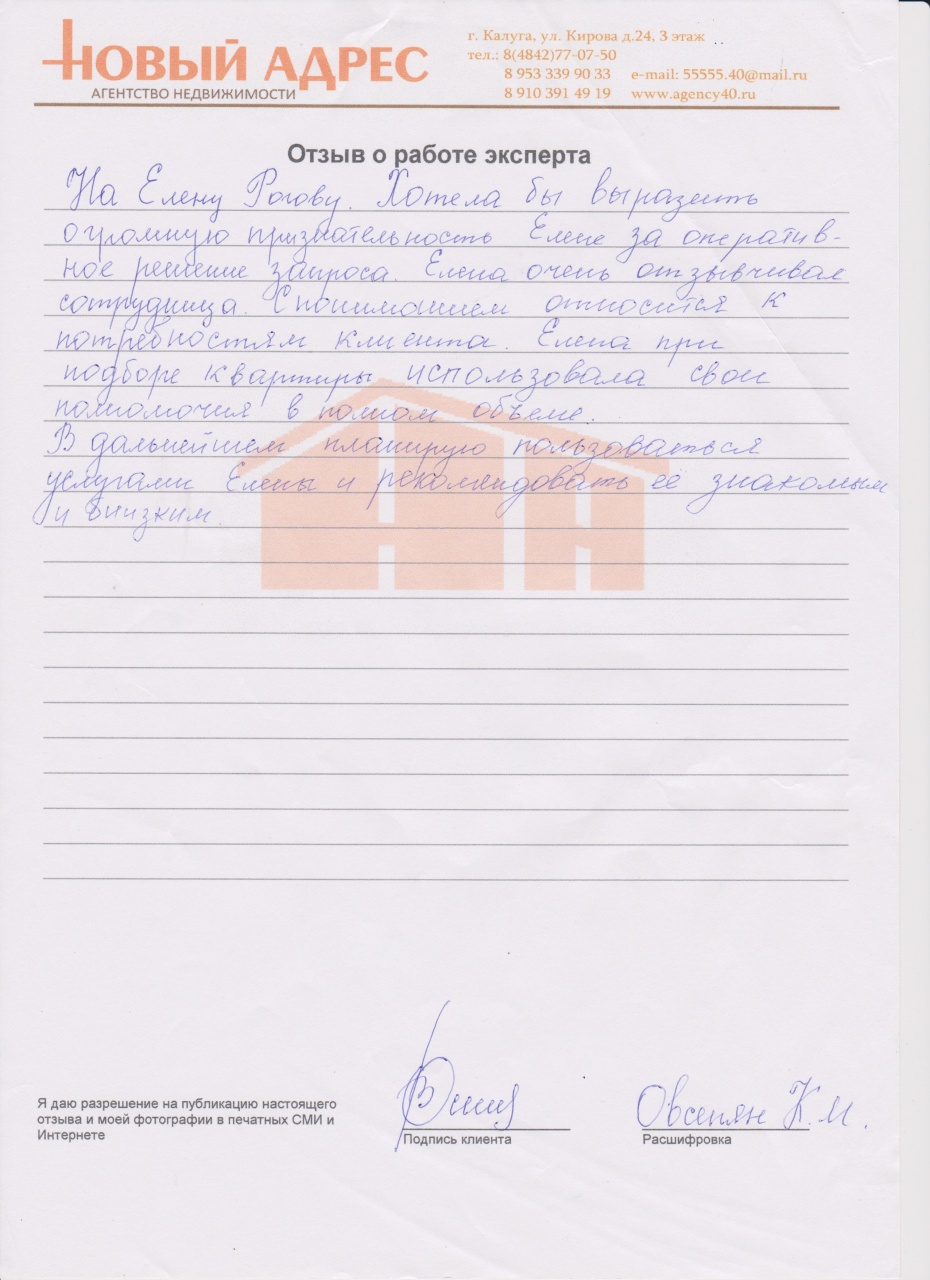 НОВЫЙ АДРЕС
АГЕНТСТВО НЕДВИЖИМОСТИ
г. Калуга, ул. Кирова д.24, 3 этаж
тел.: 8(4842)77-07-50
8 953 339 90 33 e-mail: 55555.40@mail.ru
8 910 391 49 19 www.agency40.ru
Отзыв о работе эксперта
На Елену Рогову. Хотела бы выразить
огромную признательность Елене за оператив-
ное решение запроса. Елена очень отзывчивая
сотрудница. С пониманием относится к
потребностям клиента. Елена при
подборе квартиры использовала свои
полномочия в полном объеме.
В дальнейшем планирую пользоваться
услугами Елены и рекомендовать ее знакомым
и близким.
Я даю разрешение на публикацию настоящего
отзыва и моей фотографии в печатных СМИ и
Интернете
Подпись клиента
Овсепян К.М.
Расшифровка